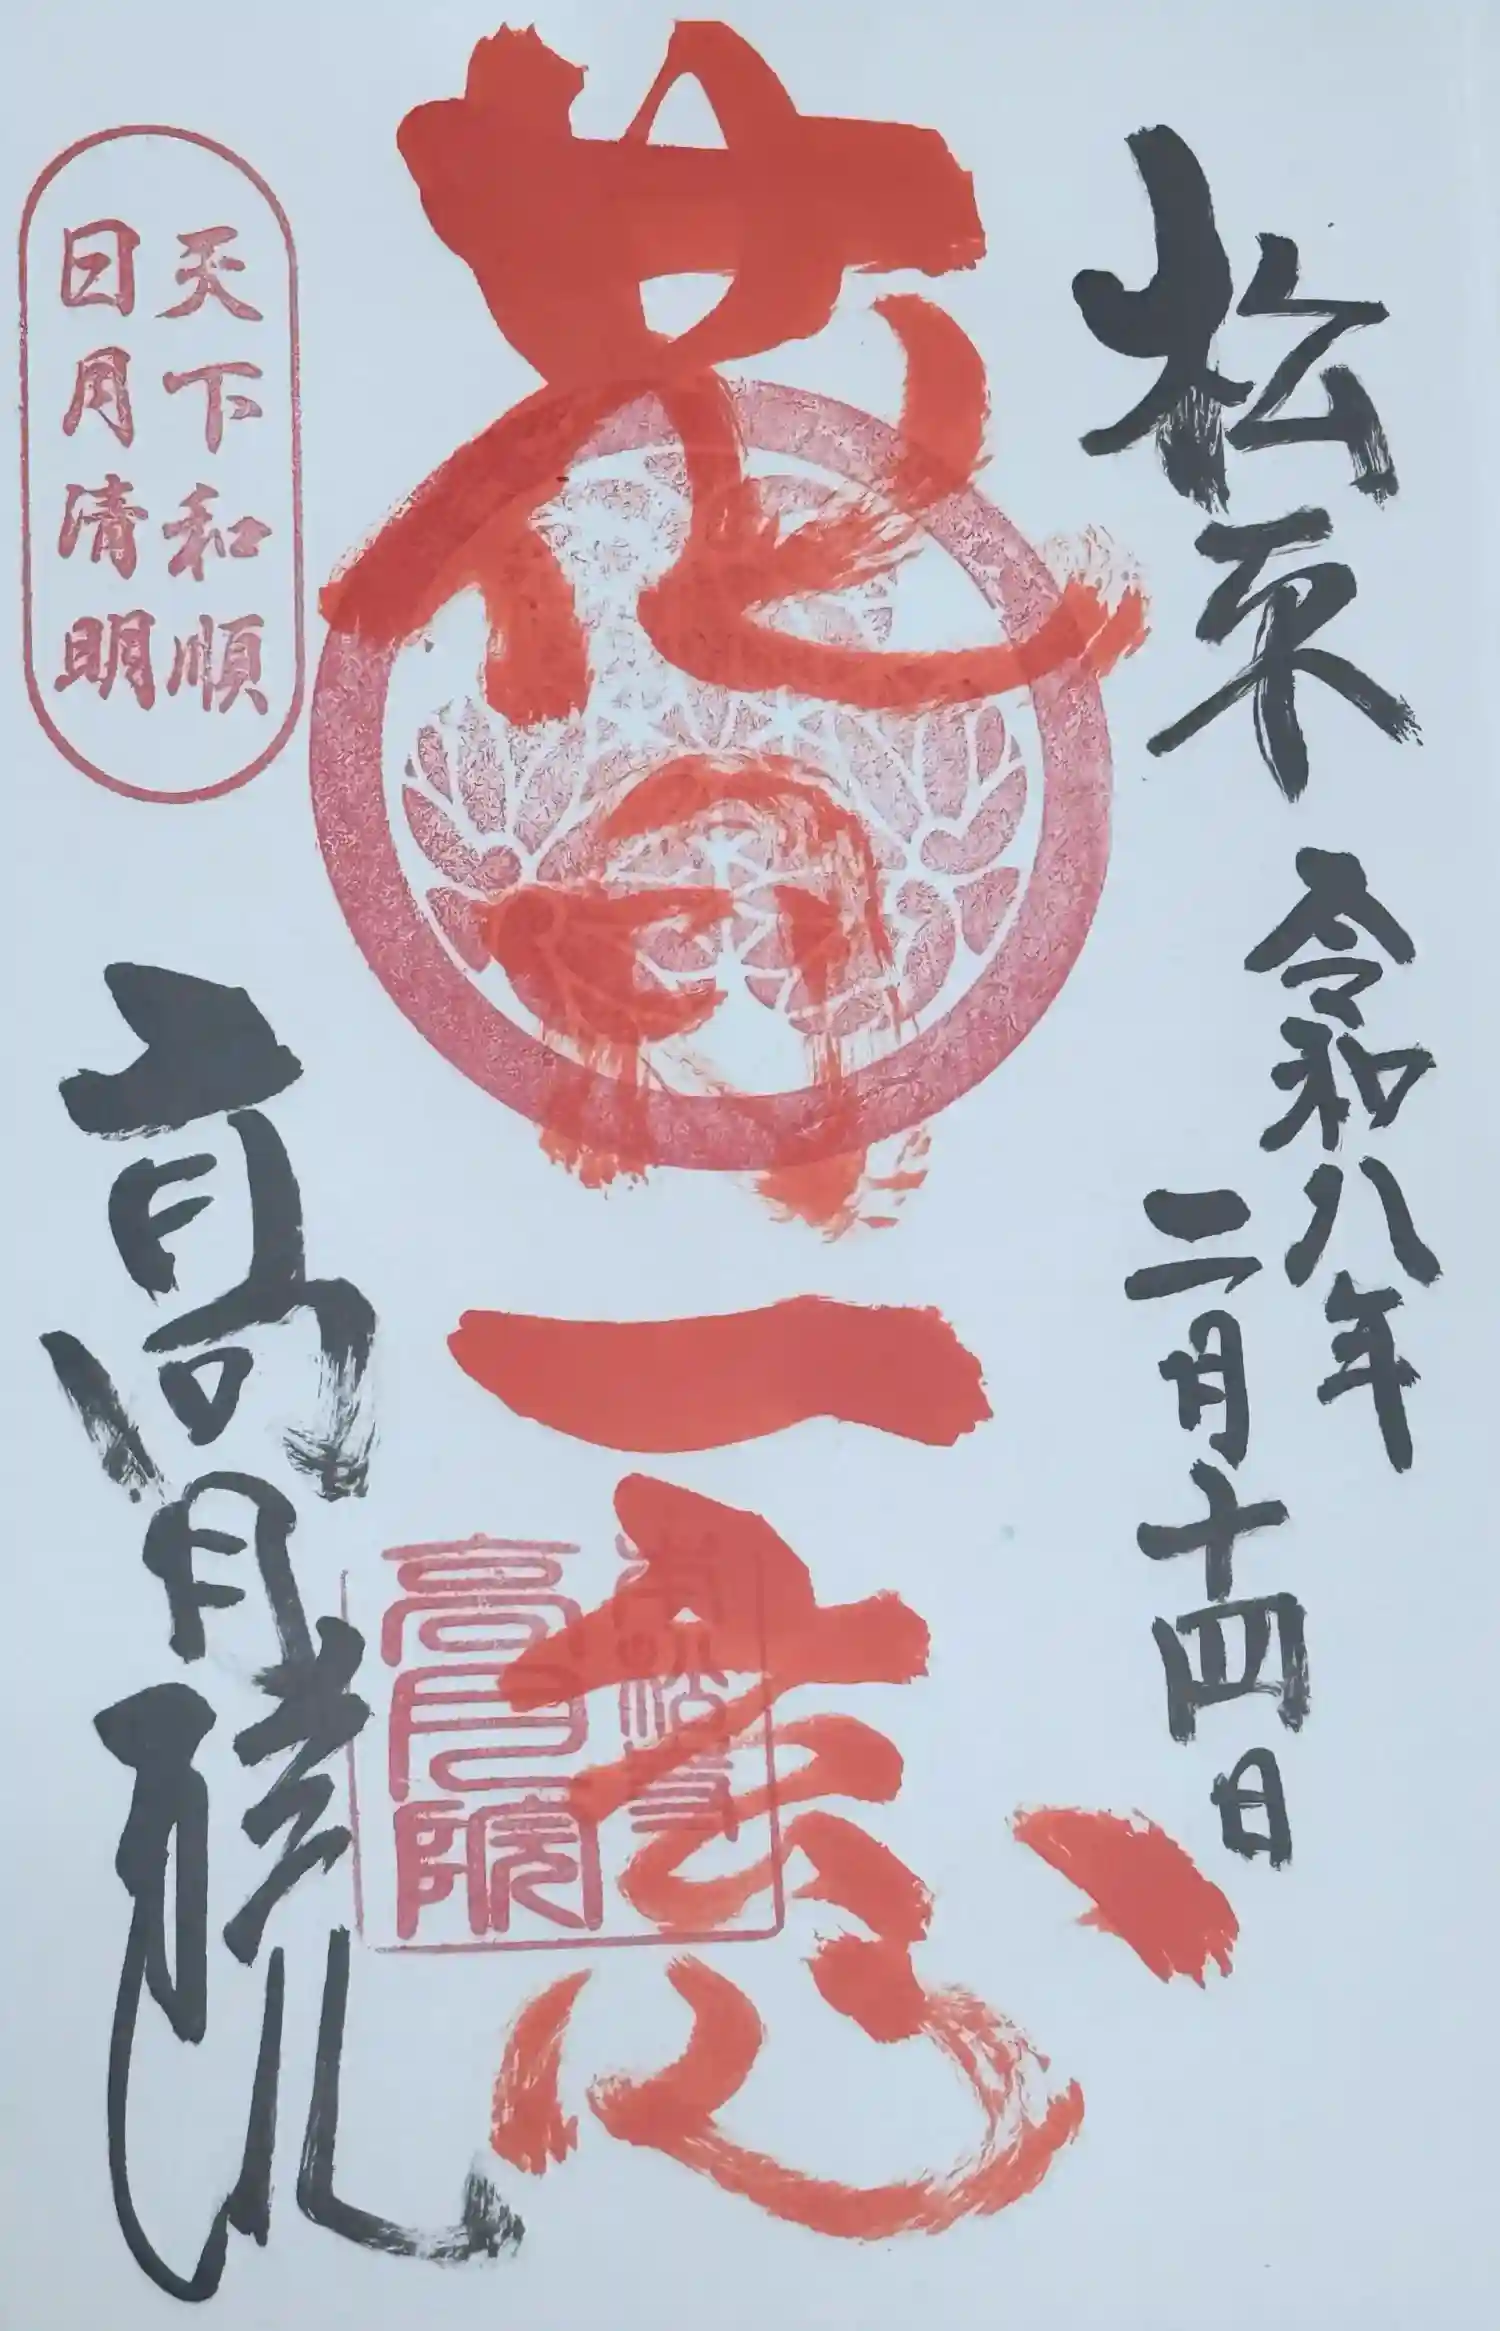 松平
令和八年
二月十四日
花
一
天下和順
日月清明
高月院
高月院